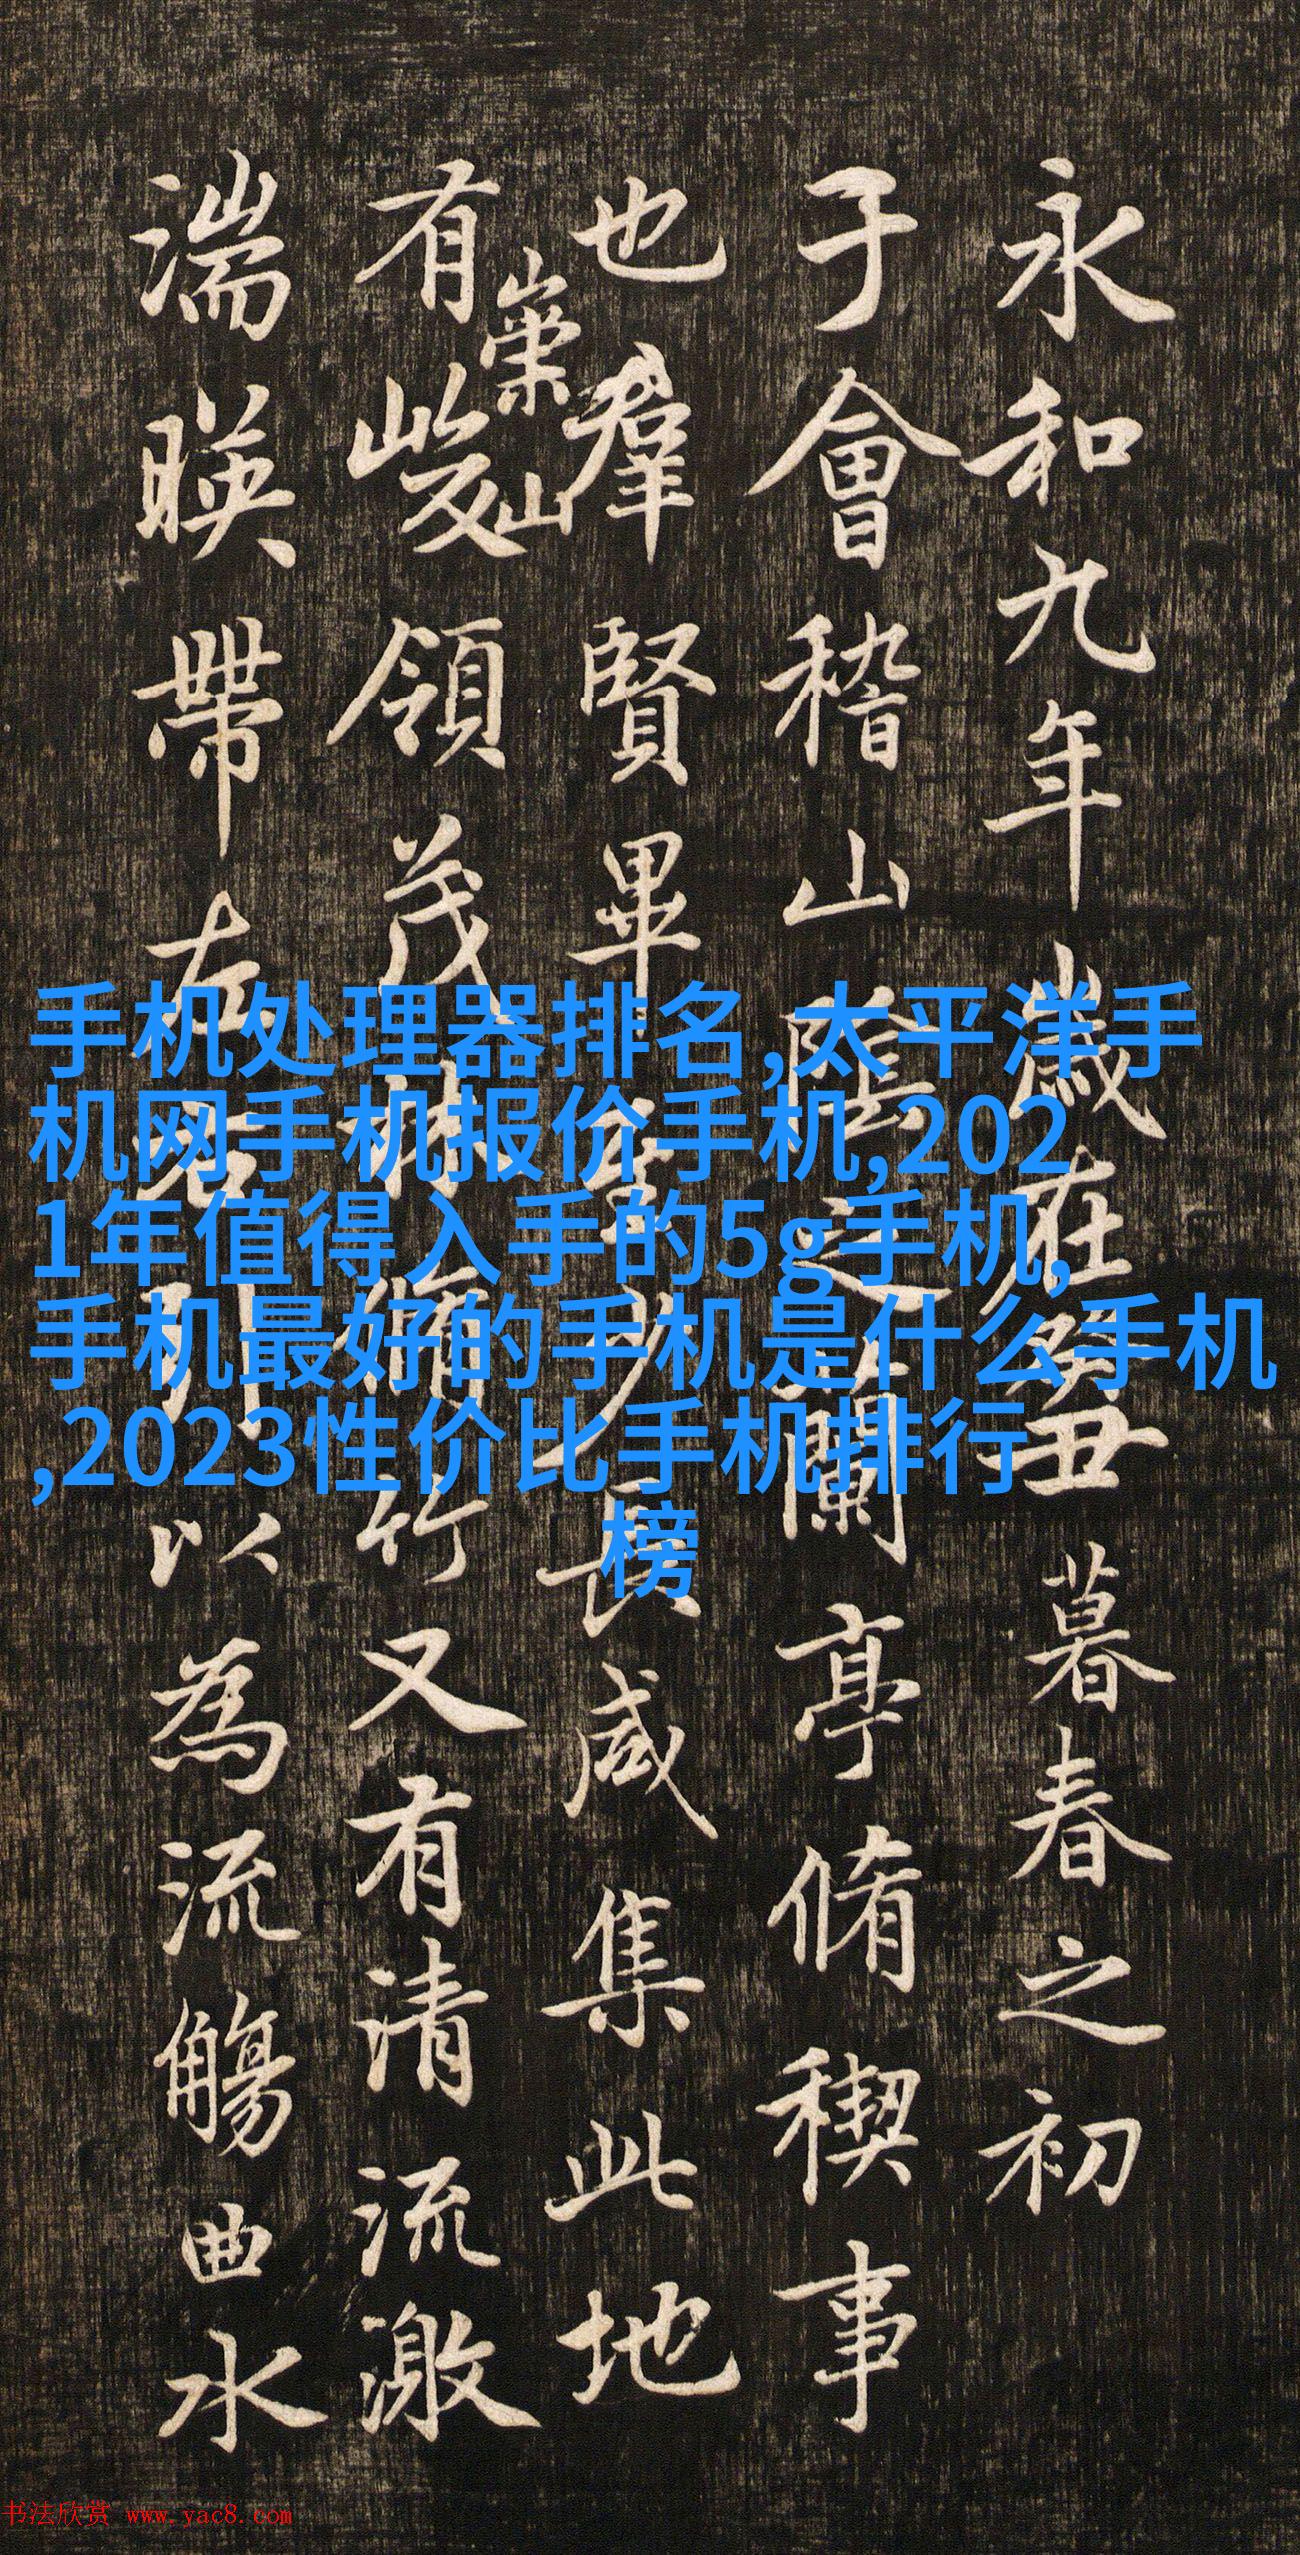 永和九年歲在癸丑暮春之初
于會稽山陰之蘭亭脩稧事
也羣賢畢至少長咸集此地
有崇山峻領茂林脩竹又有清流激
湍暎帶左右引以為流觴曲水
手机处理器排名,太平洋手
机网手机报价手机,202
1年值得入手的5g手机,
手机最好的手机是什么手机
,2023性价比手机排行
榜
书法欣赏 www.yac8.com